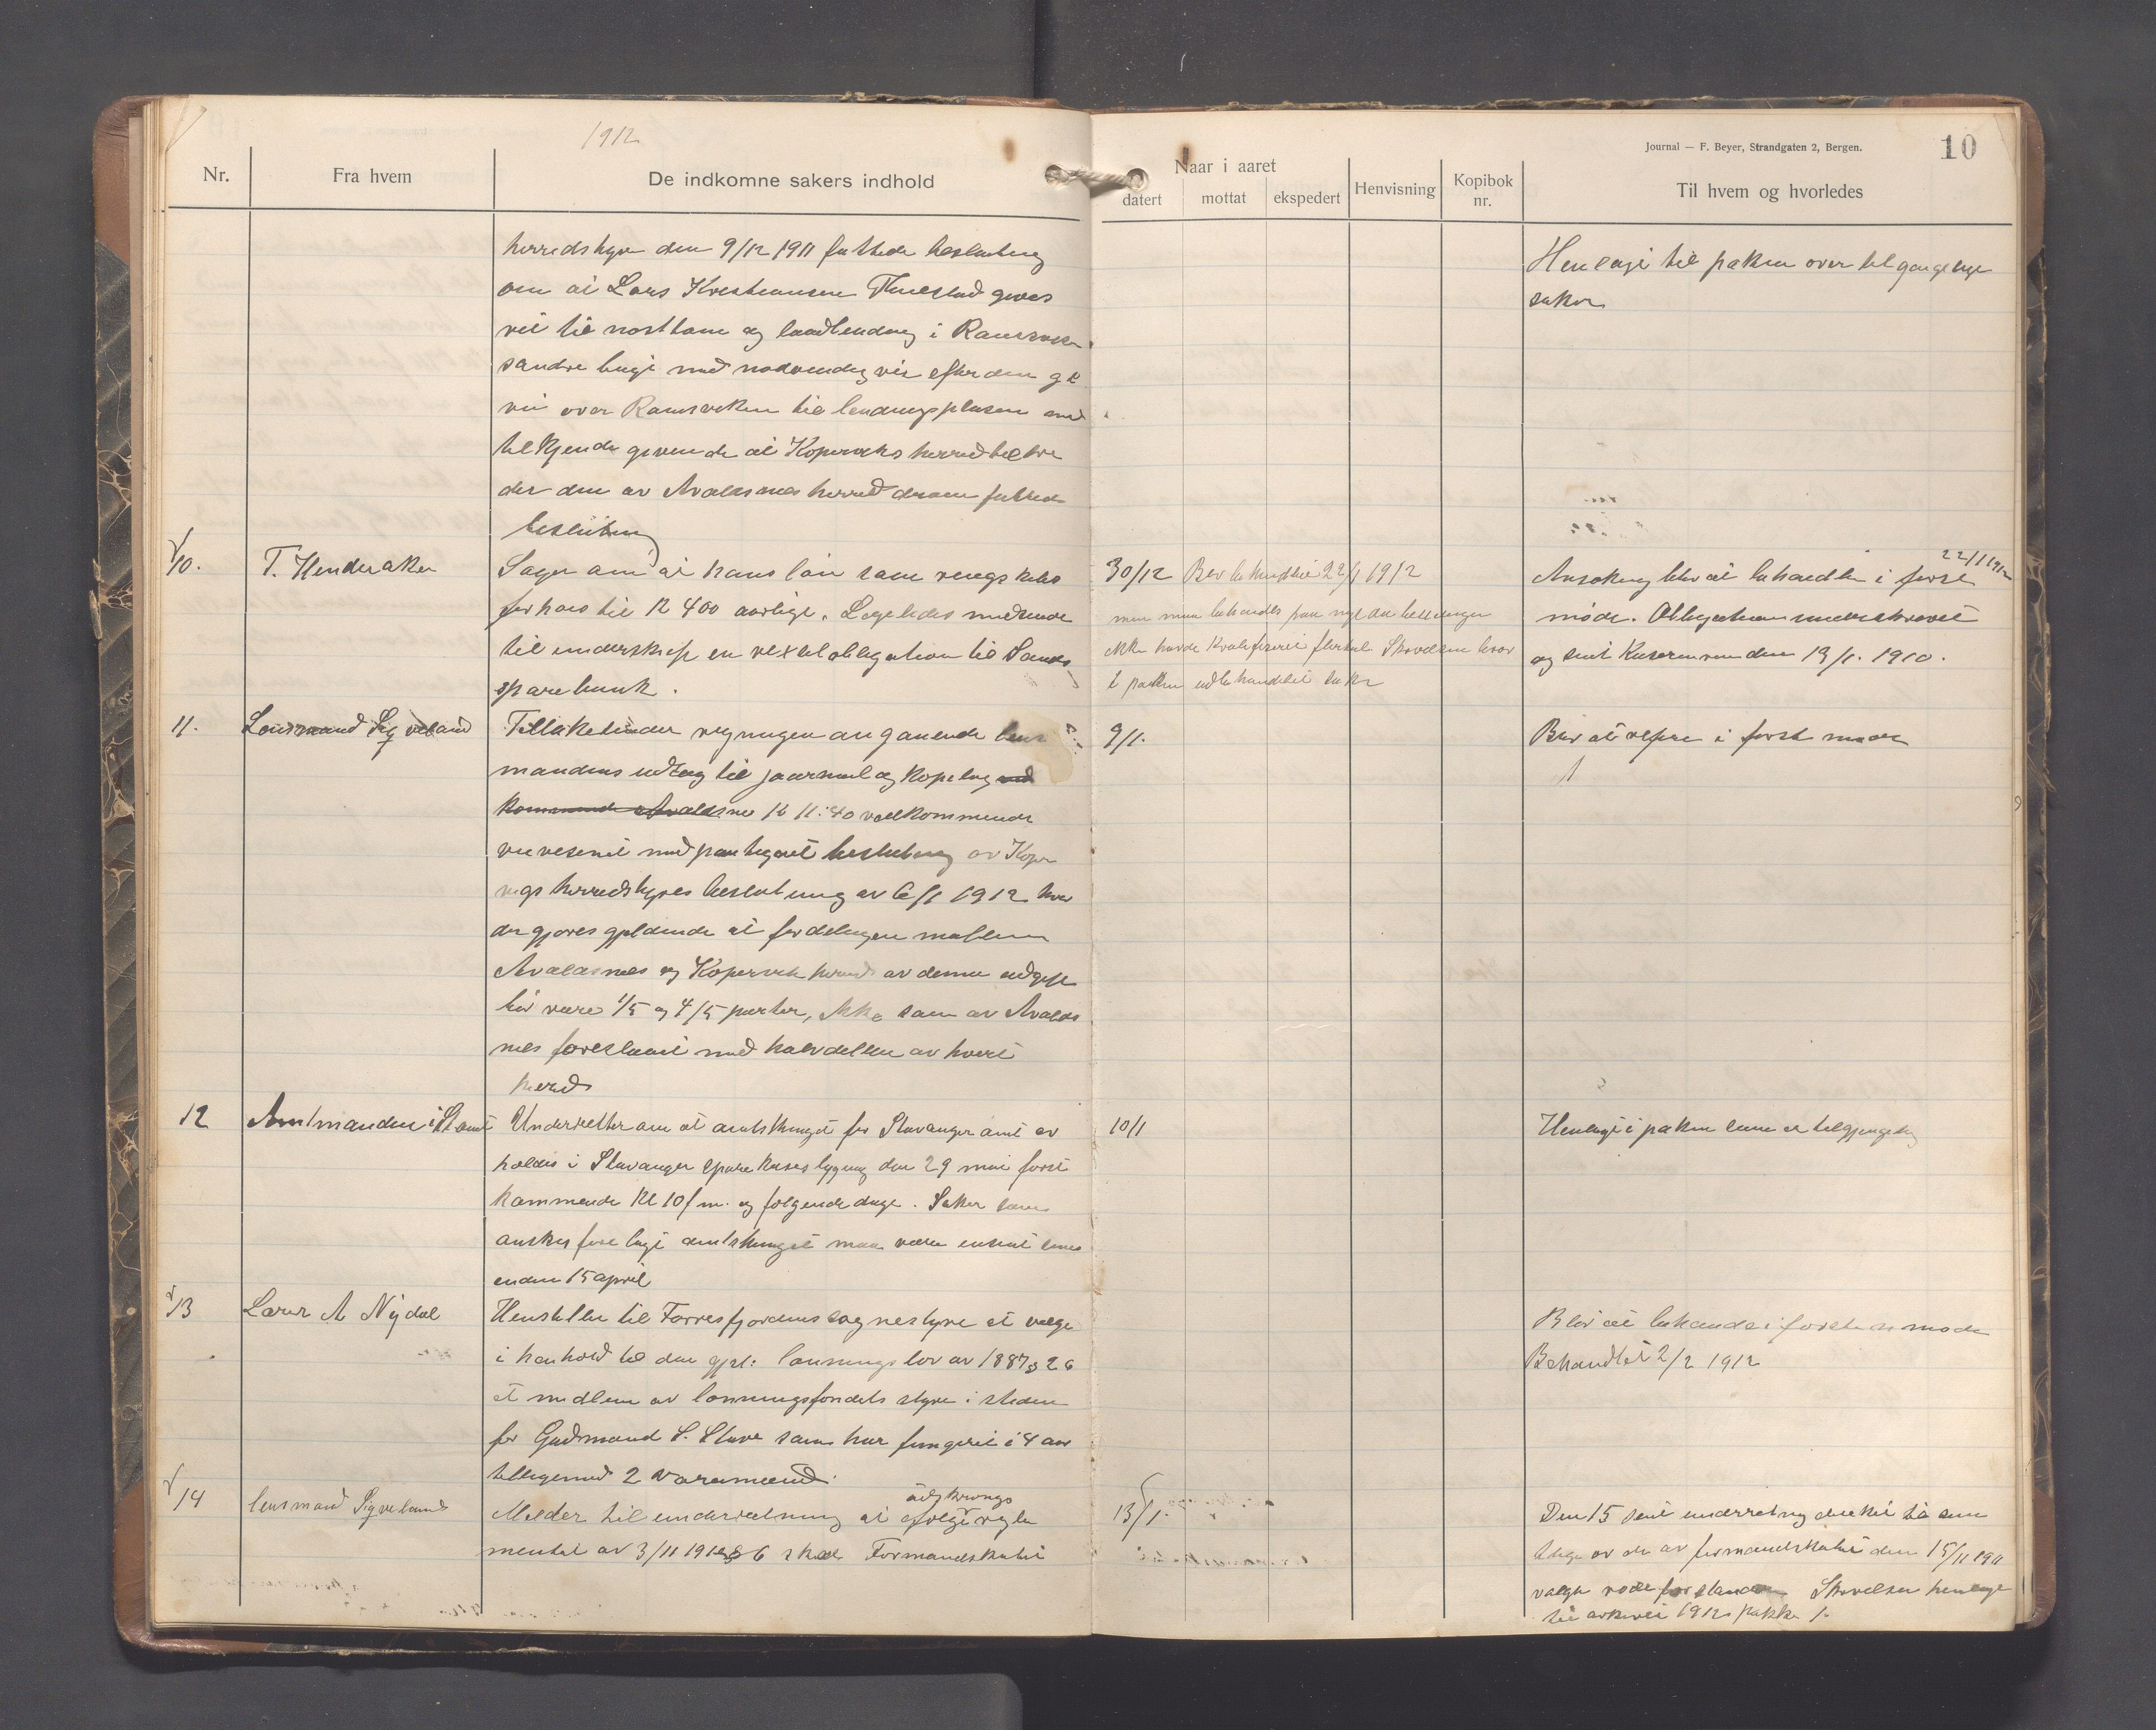 1912
Journal — F. Beyer, Strandgaten 2, Bergen.
10
Nr.
Fra hvem
De indkomne sakers indhold
Naar i aaret
datert
mottat
ekspedert
Henvisning
Kopibok nr.
Til hvem og hvorledes
herredstyre den 9/12 1911 fattede beslutning
om at Lars Kristiansen gives
vei til nosttom og baatlending i
søndre bugt med nødvendig vei efter den
vei over Ramsviken til lendingspladsen med
tilkjendegivende at Koperviks herred
den av Avaldsnes herred fattede
beslutning
Henlagt til pakken over tilgjængelige
saker
10.
T. Henderaker
Søger om at hans løn som
forhøies til K 400 aarlige. Ligeledes medsendt
til underskrift en vexelobligation til Sands
sparebank.
30/12 Blev behandlet 22/1 1912
men maa behandles paa nyt da
ikke havde kvalificeret flertal. Skrivelsen
i pakken ubehandlet saker
22/1 1912
Ansøkning blir at behandle i første
møde. Obligationen underskrevet
og sent Kasereren den 13/1. 1910.
11.
Lensmand Sigveland
Tilbakesender regningen angaaende lens
mandens utlæg til journal og kopibog med
kommende Avaldsnes 16 11.40 vedkommende
veivesenet med paategnet beslutning av Koper
vigs herredstyres beslutning av 6/1 1912 hvor
der gjøres gjeldende at fordelingen mellem
Avaldsnes og Kopervik herred av denne udgift
bør være 1/5 og 4/5 parter, ikke som av Avalds
nes foreslaaet med halvdelen av hvert
herred
9/1.
Blir at refere i første møde
1
12
Amtmanden i St. amt
Underretter om at amtstinget for Stavanger amt av
holdes i Stavanger sparekasses bygning den 29 mai først
kommende Kl 10 f.m. og følgende dage. Saker som
ønskes forelagt amtstinget maa være ensent innen
enden 15 april
10/1
Henlagt i pakken tilgjængelig
13
Lærer A Nydal
Henstiller til Førresfjordens sognestyre at vælge
i henhold til den gjel: lønningslov av 1887 § 26
et medlem av lønningsfondets styre i steden
for Gudmund S. Stave som har fungeret i 4 aar
tilligemed 2 varamænd.
Blir at behandle i første møde
Behandlet 2/2 1912
14
lensmand Sigveland
Melder til underretning at ifølge
utskrivngs
regle
mentet av 3/11 1910 § 6 skal Formandskabet
13/1.
Den 15 sent underretning direkte til
av de av formandskabet den 15/11 1911
valgte rodeforstandere. Skrivelsen henlagt
til arkivet 1912 pakke 1.